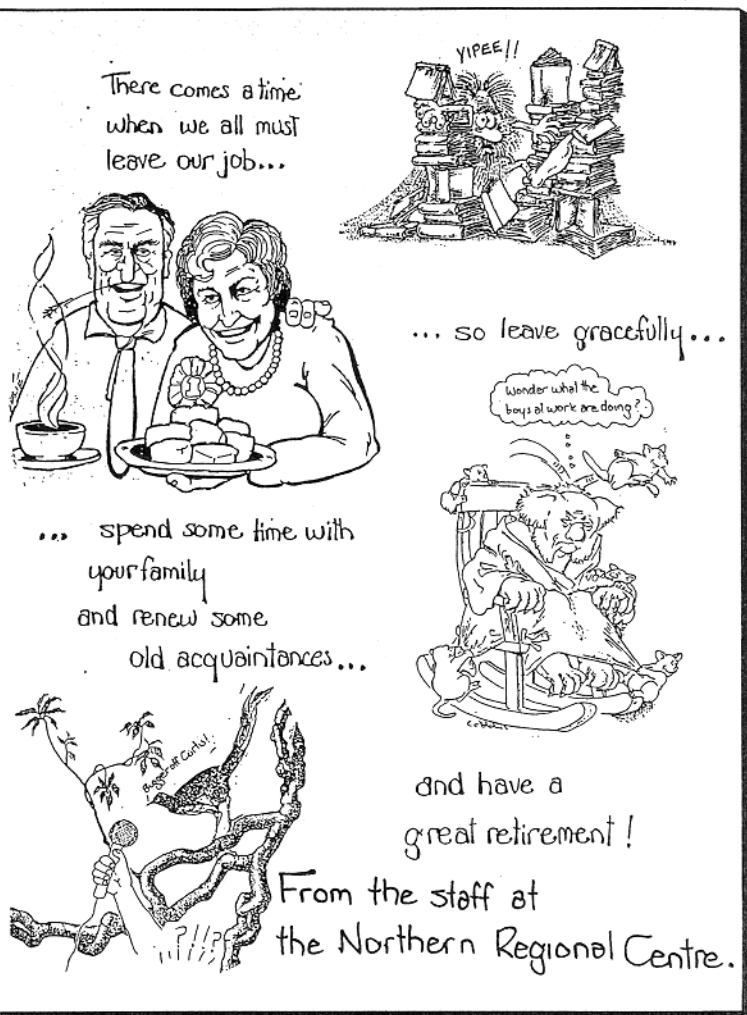 There comes a time
when we all must
leave our job...
YIPEE!!
... so leave gracefully...
Wonder what the
boys at work are doing?
... spend some time with
your family
and renew some
old acquaintances...
Bugger off Curtis!
?!?!
and have a
great retirement!
From the staff at
the Northern Regional Centre.